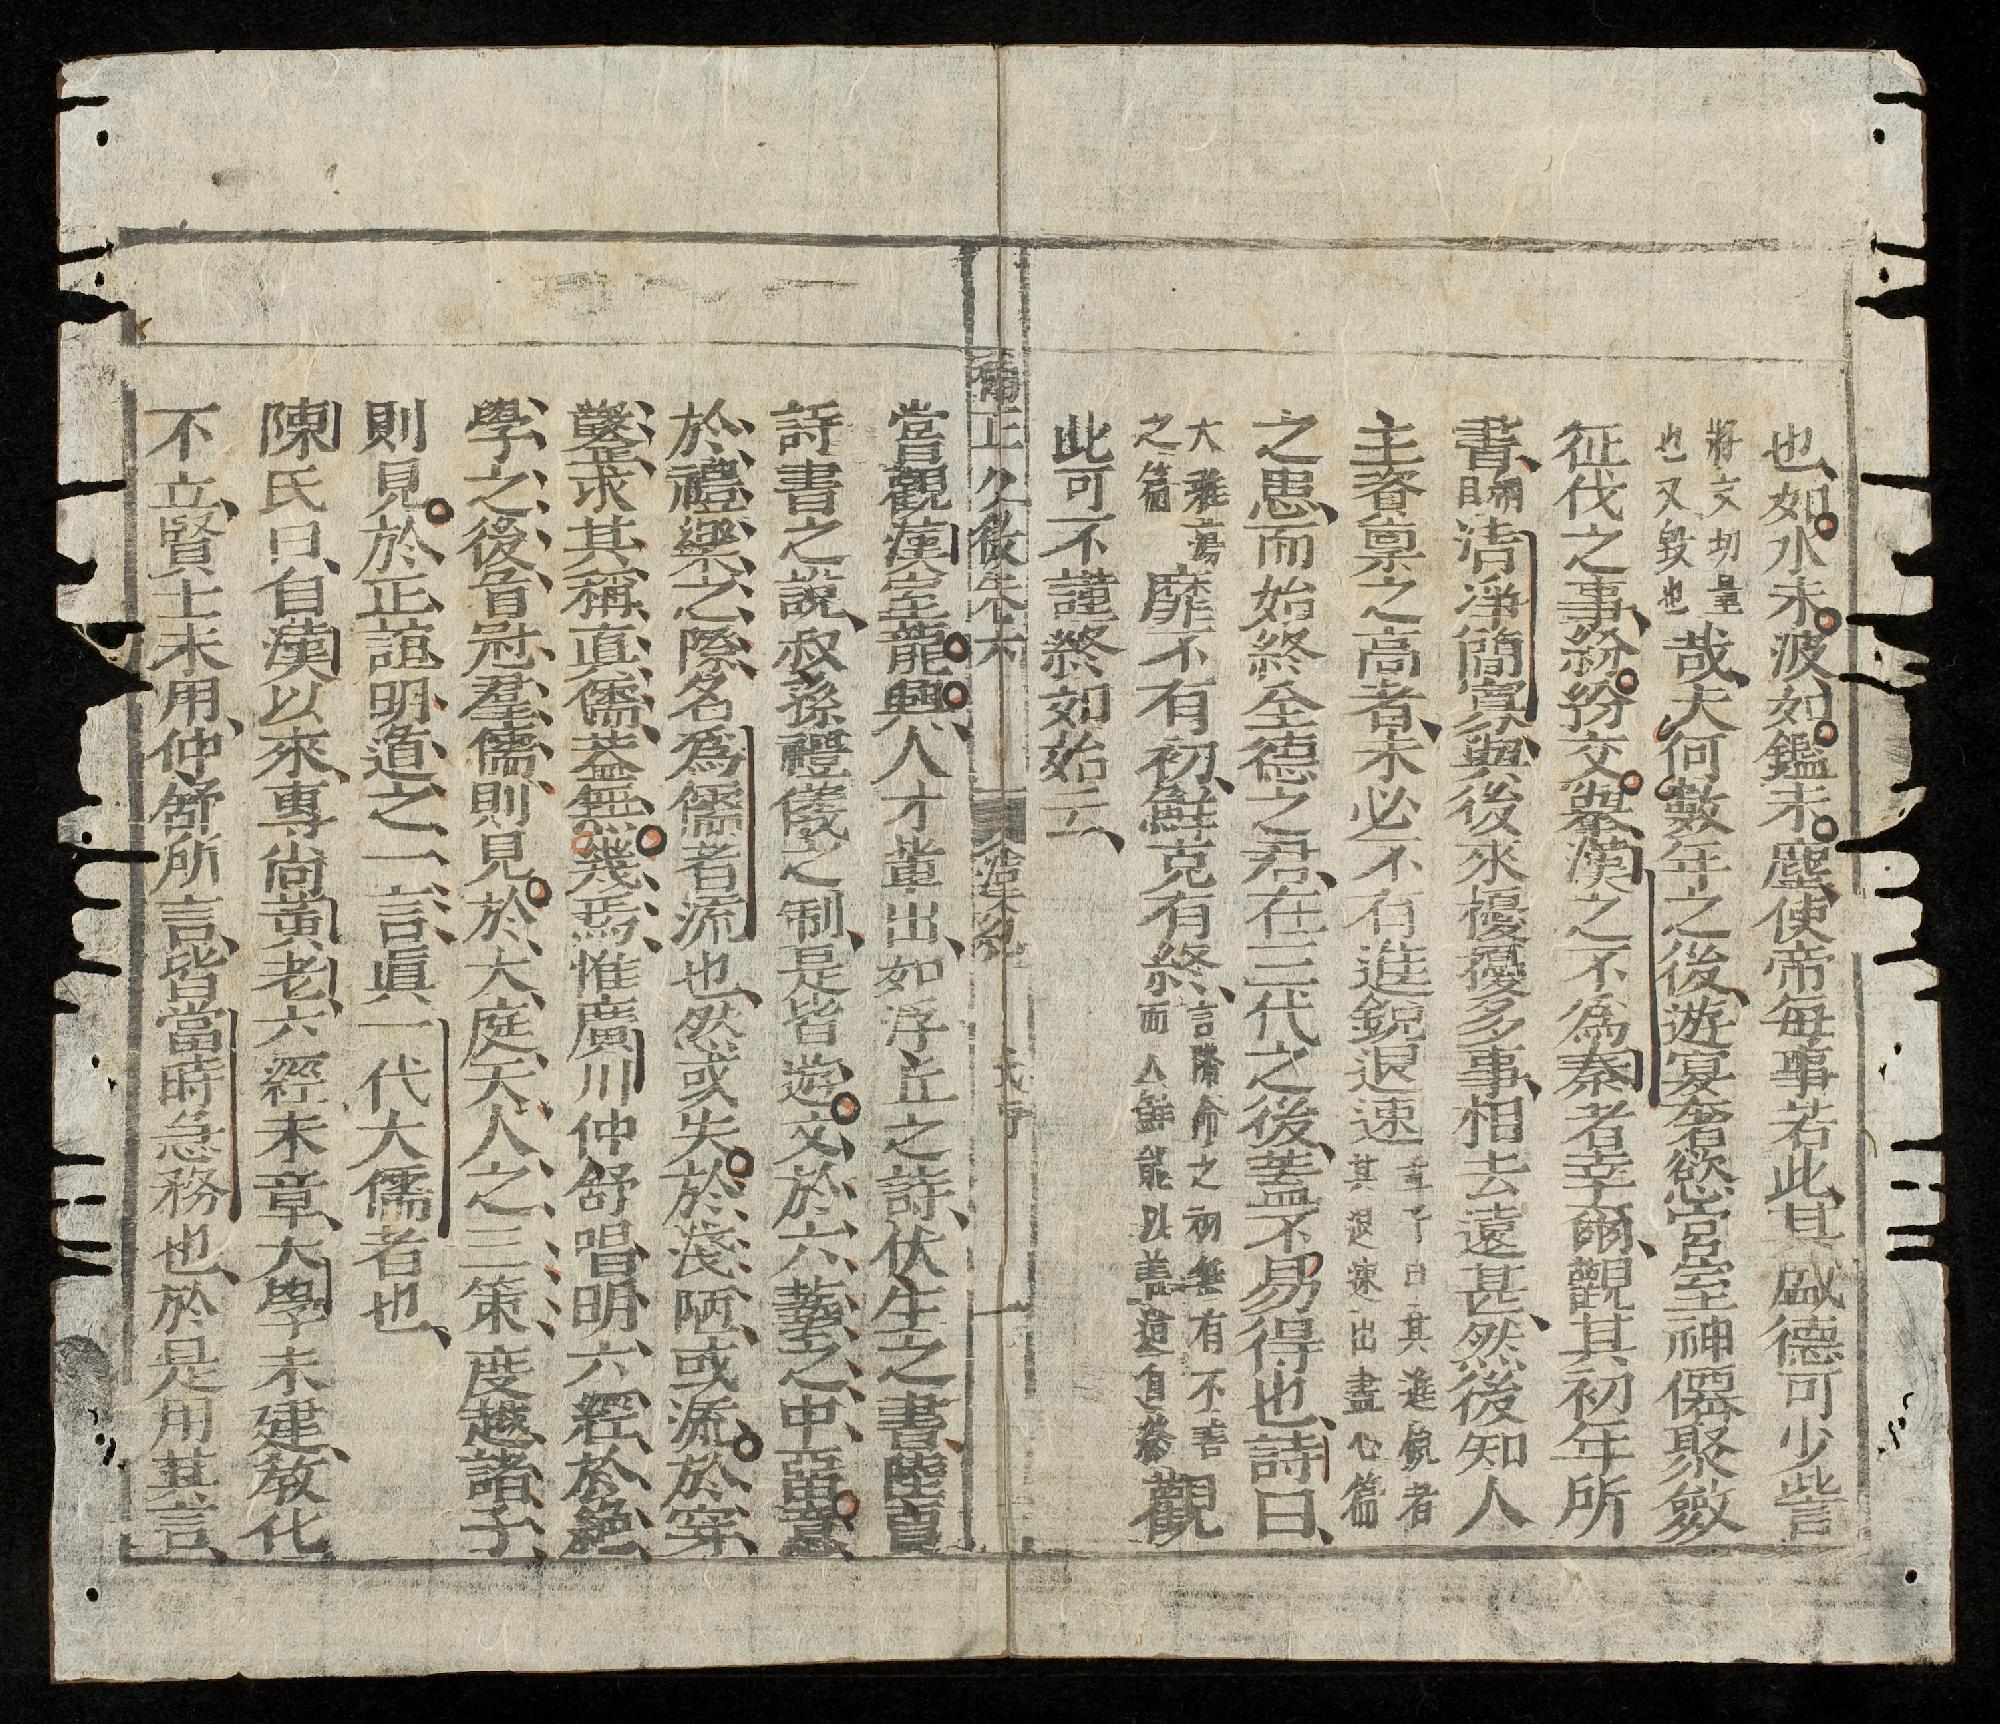 也如水未波如鑑未塵使帝每事若此其盛德可少訾
將文切量
也又毀也
哉夫何數年之後遊宴奢慾宮室神僊聚斂
征伐之事紛紛交舉漢之不為秦者幸爾觀其初年所
書清淨簡寡與後來擾擾多事相去遠甚然後知人
主資稟之高者未必不有進銳退速
孟子曰其進銳者
其退速出盡心篇
之患而始終全德之君在三代之後蓋不易得也詩曰
大雅蕩
之篇
靡不有初鮮克有終
言降命之初無有不善
而人鮮能以善道自終
觀
此可不謹終如始云
嘗觀漢室龍興人才輩出如浮丘之詩伏生之書陸賈
詩書之說叔孫禮儀之制是皆遊文於六藝之中留意
於禮樂之際名為儒者流也然或失於淺陋或流於穿
鑿求其稱真儒蓋無幾焉惟廣川仲舒唱明六經於絕
學之後首冠羣儒則見於大庭天人之三策度越諸子
則見於正誼明道之一言眞一代大儒者也
陳氏曰自漢以來專尚黃老六經未章大學未建敎化
不立賢士未用仲舒所言皆當時急務也於是用其言